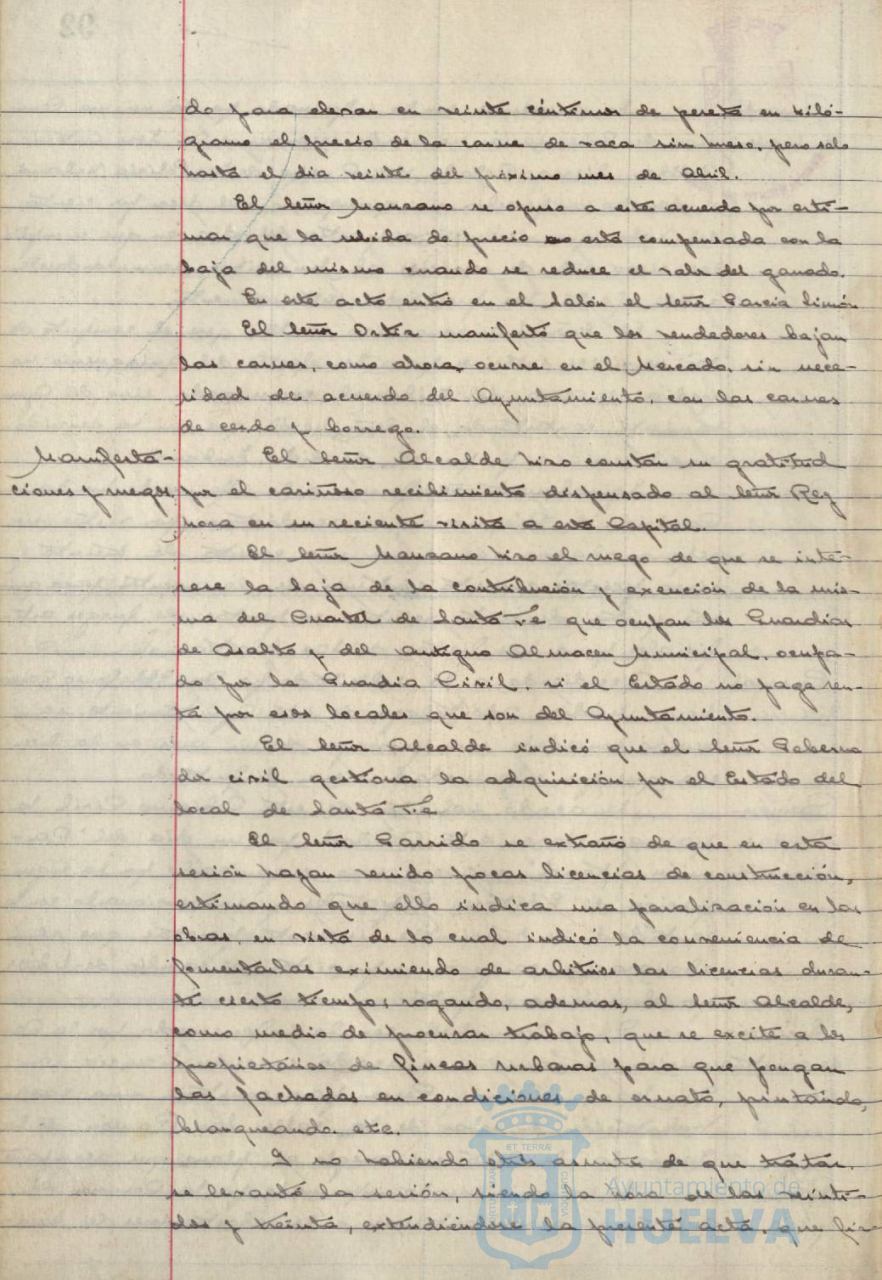 do para elevar en veinte céntimos de peseta en kiló-
gramo el precio de la carne de vaca sin hueso, pero solo
hasta el dia veinte del próximo mes de Abril.
El Señor Manzano se opuso a este acuerdo por esti-
mar que la subida de precio no está compensada con la
baja del mismo cuando se reduce el valor del ganado.
En este acto entró en el Salón el Señor Garcia Simón
El Señor Ortiz manifestó que los vendedores bajan
las carnes, como ahora ocurre en el Mercado, sin nece-
sidad de acuerdo del Ayuntamiento, con las carnes
de cerdo y borrego.
Manifesta-
ciones y ruegos
El Señor Alcalde hizo constar su gratitud
por el cariñoso recibimiento dispensado al Señor Rey
Mora en su reciente visita a esta Capital.
El Señor Manzano hizo el ruego de que se inte-
rese la baja de la contribución y exención de la mis-
ma del Cuartel de Santa Fé que ocupan los Guardias
de Asalto y del antiguo Almacen Municipal, ocupa-
do por la Guardia Civil, si el Estado no paga ren-
ta por esos locales que son del Ayuntamiento.
El Señor Alcalde indicó que el Señor Goberna
dor civil gestiona la adquisición por el Estado del
local de Santa Fé
El Señor Garrido se extrañó de que en esta
sesión hayan venido pocas licencias de construcción,
estimando que ello indica una paralización en las
obras, en vista de lo cual indicó la conveniencia de
fomentarlas eximiendo de arbitrios las licencias duran-
te cierto tiempo; rogando, ademas, al Señor Alcalde,
como medio de procurar trabajo, que se excite a los
propietarios de fincas urbanas para que pongan
las fachadas en condiciones de ornato, pintando,
blanqueando. etc.
Y no habiendo otros asuntos de que tratar,
se levantó la sesión, siendo la hora de las veinti-
dos y treinta, extendiéndose la presente acta, que fir-
ET TERRÆ
Ayuntamiento de
HUELVA